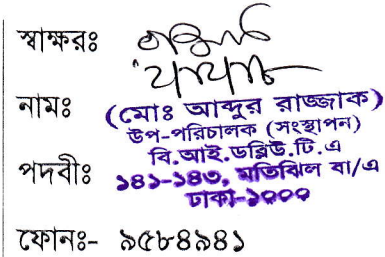 স্বাক্ষরঃ
নামঃ (মোঃ আব্দুর রাজ্জাক)
উপ-পরিচালক (সংস্থাপন)
পদবীঃ বি.আই.ডব্লিউ.টি.এ
১৪১-১৪৩, মতিঝিল বা/এ
ঢাকা-১০০০
ফোনঃ- ৯৫৮৪৯৪১